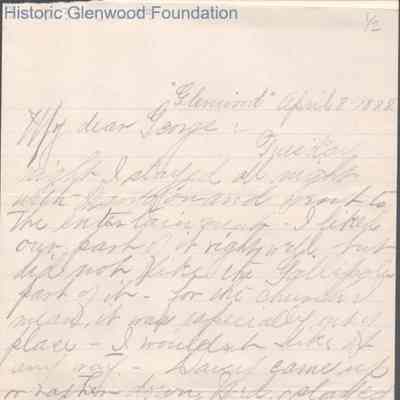 Historic Glenwood Foundation
1/2
"Glenwood" April 8-1888
My dear George:
Tuesday
night I stayed all night
with and went to
the entertainment - I liked
our part of it right well, but
did not like the
part of it - for the church I
mean, it was especially out of
place - I wouldn't like it
any way. - came up
or rather down, and stayed